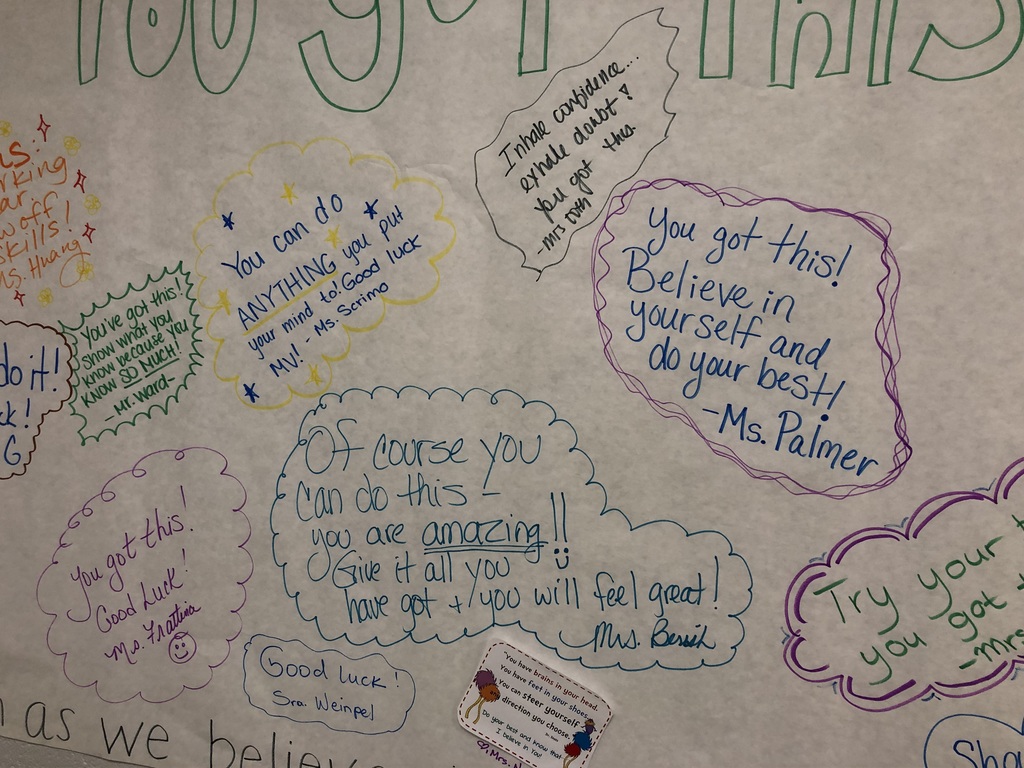 You got this
Inhale confidence...
exhale doubt!
You got this.
-Mrs
rking
w off
skills!
Ms. Huang
You can do
ANYTHING you put
your mind to! Good luck
MV! - Ms. Scrimo
You got this!
Believe in
yourself and
do your best!
-Ms. Palmer
You've got this!
Show what you
know because you
know SO MUCH!
-Mr. Ward-
do it!
ck!
G
Of course you
can do this -
you are amazing!!
Give it all you
have got + you will feel great!
Mrs.
You got this!
Good Luck!
Ms. Frattina
Try your
you got t
-Mrs
Good luck!
Sra. Weinpel
"You have brains in your head.
You have feet in your shoes.
You can steer yourself
direction you choose.
Do your best and know that
I believe in You!
Mrs. N
as we believe
Sho